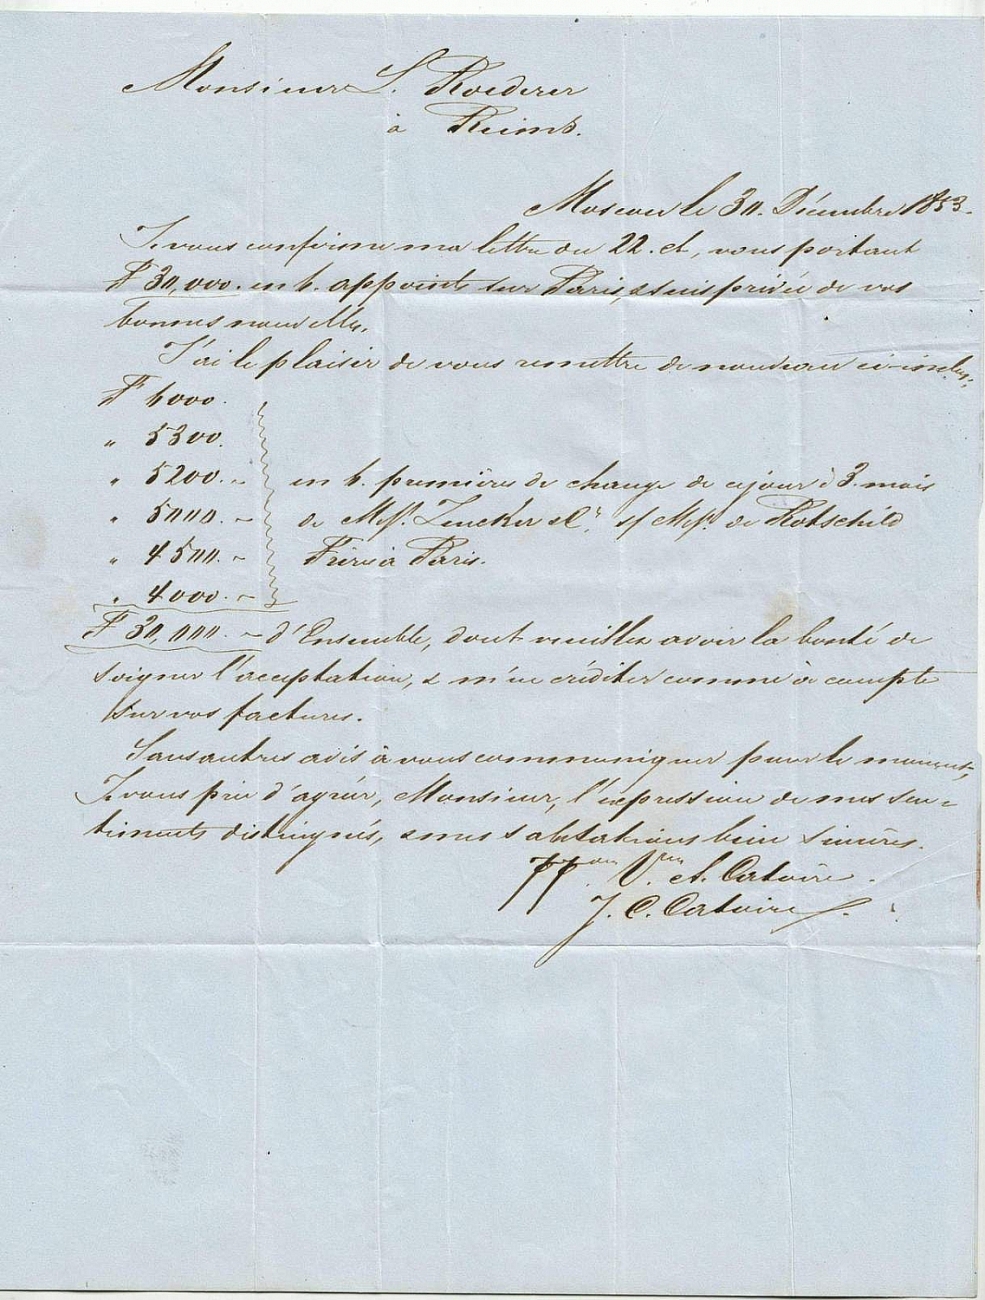 Monsieur L. Roederer
à Reims.
Moscou le 30. Décembre 1853.
Je vous confirme ma lettre du 22. ct, vous portant
F 30,000. en 6. appoints sur Paris, & suis privé de vos
bonnes nouvelles.
J'ai le plaisir de vous remettre de nouveau ci-inclus,
F 6000.
" 5300.
" 5200. - en 6. premières de change de ce jour à 3. mois
" 5000. - de Mess. Zencker & Cº s/ Mess. de Rotschild
" 4500. - Frères à Paris.
" 4000. -
F 30,000. - d'Ensemble, dont veuillez avoir la bonté de
soigner l'acceptation, & m'en créditer comme à compte
sur vos factures.
Sans autres avis à vous communiquer pour le moment,
Je vous prie d'agréer, Monsieur, l'expression de mes sen-
timents distingués, & mes salutations bien sincères.
ppon Vve A. Catoire.
J. C. Catoire